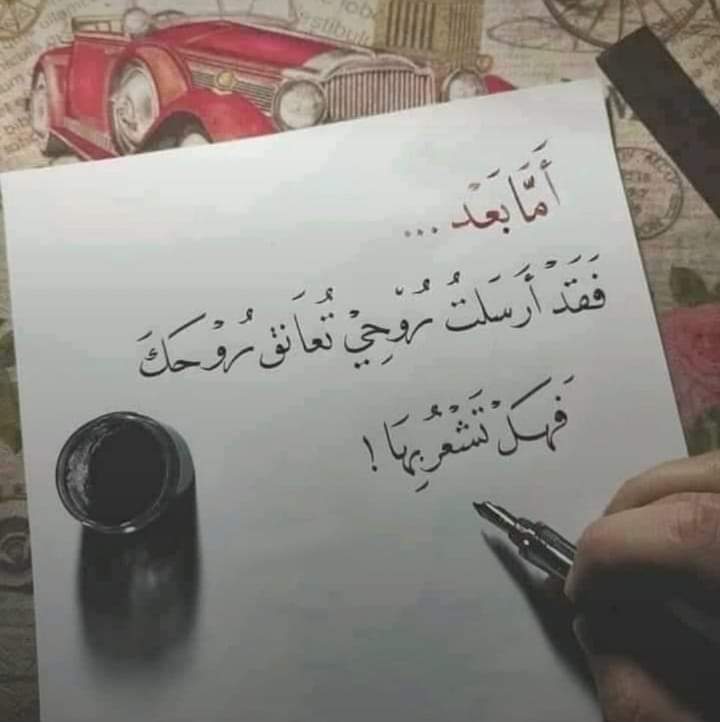 أَمَّا بَعْد ...
فَقَدْ أَرسَلتُ رُوْحِيْ تُعَانق رُوْحَكَ
فَهَلْ تَشْعُرُ بِهَا !